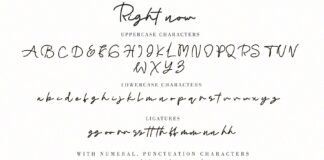 Right now
UPPERCASE CHARACTERS
A B C D E F G H I J K L M N O P Q R S T U V
W X Y Z
LOWERCASE CHARACTERS
a b c d e f g h i j k l m n o p q r s t u v w x y z
LIGATURES
WITH NUMERAL, PUNCTUATION CHARACTERS